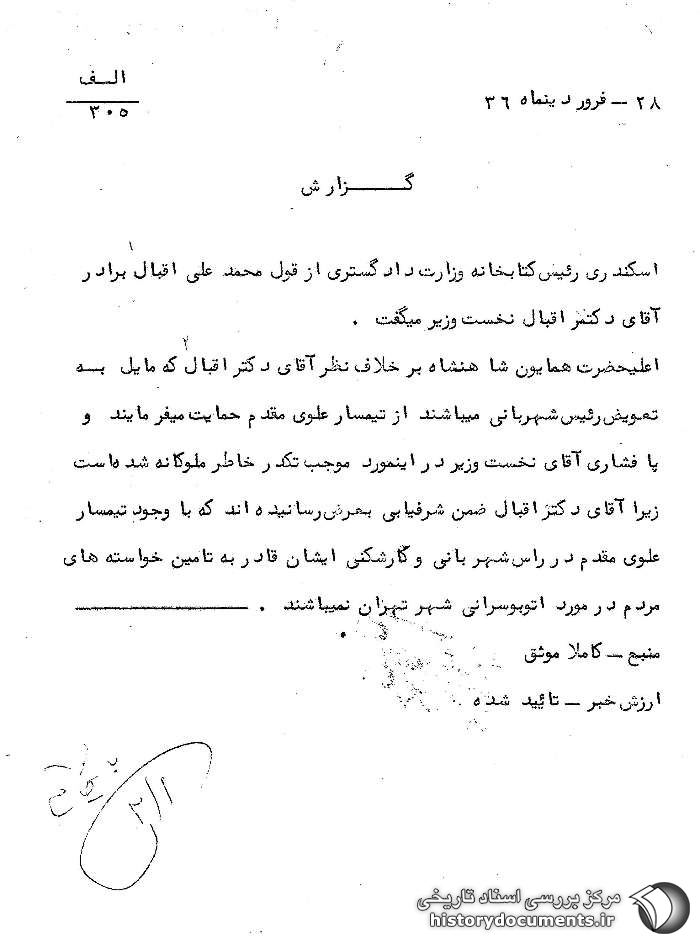 الف
۳۰۵
۲۸ - فروردینماه ۳۶
گزارش
اسکندری رئیس کتابخانه وزارت دادگستری از قول محمد علی اقبال ۱ برادر
آقای دکتر اقبال نخست وزیر میگفت .
اعلیحضرت همایون شاهنشاه بر خلاف نظر آقای دکتر اقبال ۲ که مایل به
تعویض رئیس شهربانی میباشند از تیمسار علوی مقدم حمایت میفرمایند و
پافشاری آقای نخست وزیر در اینمورد موجب تکدر خاطر ملوکانه شده است
زیرا آقای دکتر اقبال ضمن شرفیابی بعرض رسانیده اند که با وجود تیمسار
علوی مقدم در راس شهربانی و کارشکنی ایشان قادر به تامین خواسته های
مردم در مورد اتوبوسرانی شهر تهران نمیباشند .
منبع - کاملا موثق
ارزش خبر - تائید شده
۲/۱
مرکز بررسی اسناد تاریخی
historydocuments.ir